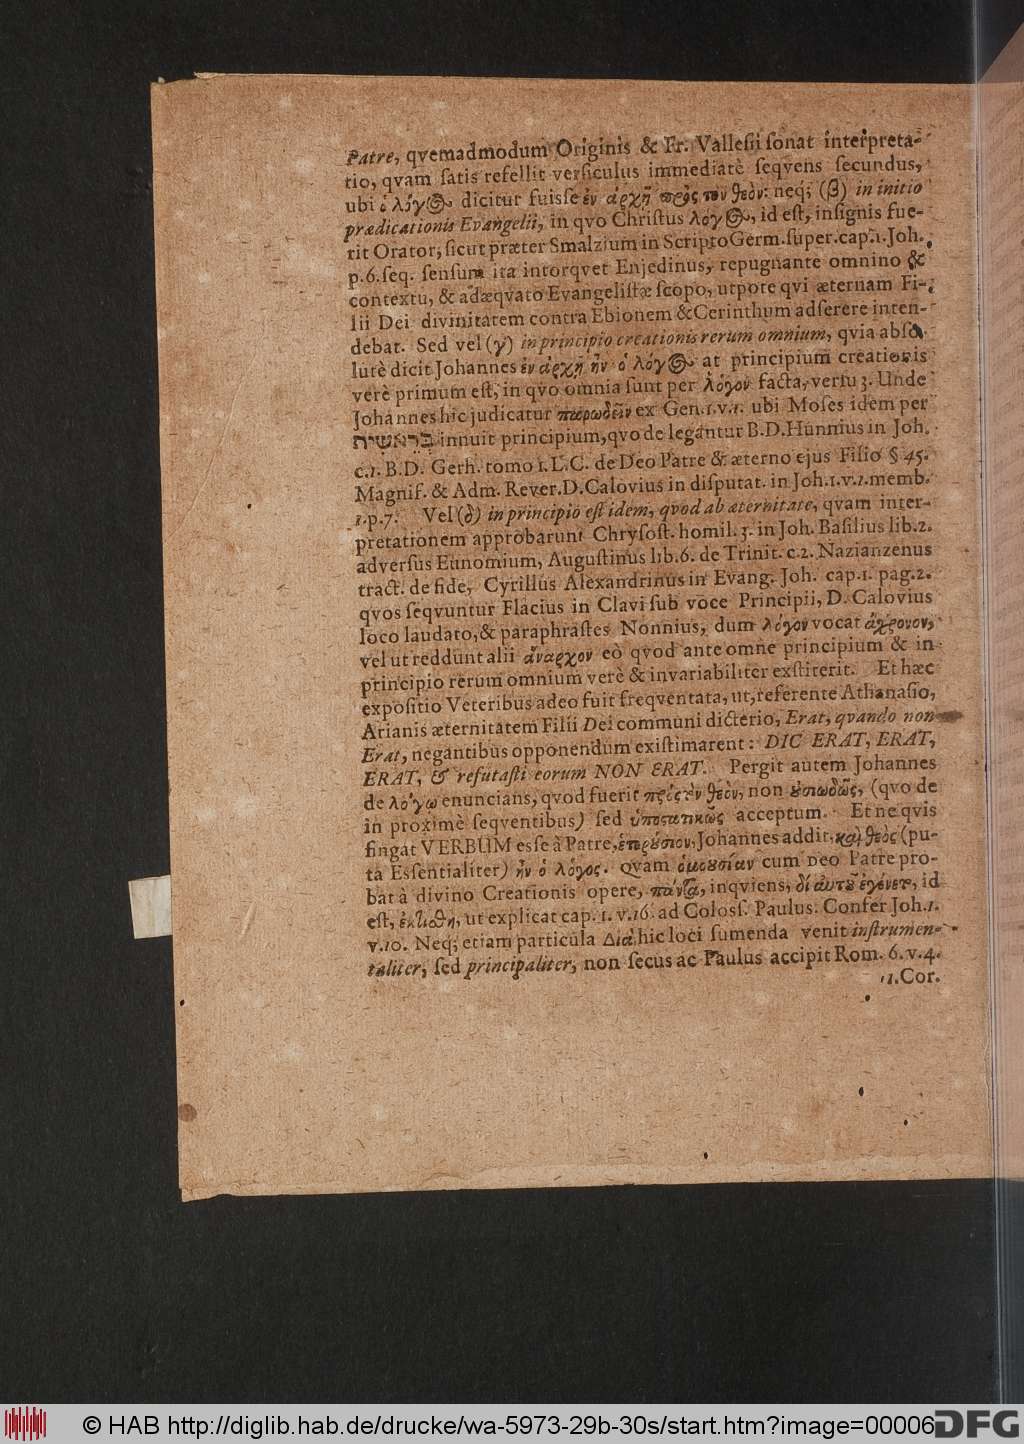 Patre, qvemadmodum Originis & Fr. Vallesii sonat interpreta-
tio, qvam satis refellit versiculus immediatè seqvens secundus,
ubi ὁ λόγος dicitur fuisse ἐν ἀρχῇ πρὸς τὸν θεὸν: neq; (β) in initio
prædicationis Evangelii, in qvo Christus λόγος, id est, insignis fue-
rit Orator, sicut præter Smalzium in Scripto Germ. super. cap. 1. Joh.
p. 6. seq. sensum ita intorqvet Enjedinus, repugnante omnino &
contextu, & adæqvato Evangelistæ scopo, utpote qvi æternam Fi-
lii Dei divinitatem contra Ebionem & Cerinthum adserere inten-
debat. Sed vel (γ) in principio creationis rerum omnium, qvia abso-
lutè dicit Johannes ἐν ἀρχῇ ἦν ὁ λόγος at principium creationis
verè primum est, in qvo omnia sunt per λόγον facta, versu 3. Unde
Johannes hic judicatur παρωδεῖν ex Gen. 1. v. 1. ubi Moses idem per
בְּרֵאשִׁית innuit principium, qvo de legantur B. D. Hunnius in Joh.
c. 1. B. D. Gerh. tomo 1. L. C. de Deo Patre & æterno ejus Filio § 45.
Magnif. & Adm. Rever. D. Calovius in disputat. in Joh. 1. v. 1. memb.
1. p. 7. Vel (δ) in principio est idem, qvod ab æternitate, qvam inter-
pretationem approbarunt Chrysost. homil. 3. in Joh. Basilius lib. 2.
adversus Eunomium, Augustinus lib. 6. de Trinit. c. 2. Nazianzenus
tract. de fide, Cyrillus Alexandrinus in Evang. Joh. cap. 1. pag. 2.
qvos seqvuntur Flacius in Clavi sub voce Principii, D. Calovius
loco laudato, & paraphrastes Nonnius, dum λόγον vocat ἄχρονον,
vel ut reddunt alii ἄναρχον eò qvod ante omne principium & in
principio rerum omnium verè & invariabiliter exstiterit. Et hæc
expositio Veteribus adeo fuit freqventata, ut, referente Athanasio,
Arianis æternitatem Filii Dei communi dicterio, Erat, qvando non
Erat, negantibus opponendum existimarent: DIC ERAT, ERAT,
ERAT, & refutasti eorum NON ERAT. Pergit autem Johannes
de λόγῳ enuncians, qvod fuerit πρὸς τὸν θεὸν, non οὐσιωδῶς, (qvo de
in proximè seqventibus) sed ὑποστατικῶς acceptum. Et ne qvis
fingat VERBUM esse à Patre, ἑτερούσιον, Johannes addit, καὶ θεὸς (pu-
tà Essentialiter) ἦν ὁ λόγος. Qvam ὁμουσίαν cum Deo Patre pro-
bat à divino Creationis opere, πάντα, inqviens, δι' αὐτοῦ ἐγένετο, id
est, ἐκτίσθη, ut explicat cap. 1. v. 16. ad Coloss. Paulus. Confer Joh. 1.
v. 10. Neq; etiam particula Διὰ hic loci sumenda venit instrumen-
taliter, sed principaliter, non secus ac Paulus accipit Rom. 6. v. 4.
1. Cor.
© HAB http://diglib.hab.de/drucke/wa-5973-29b-30s/start.htm?image=00006
DFG